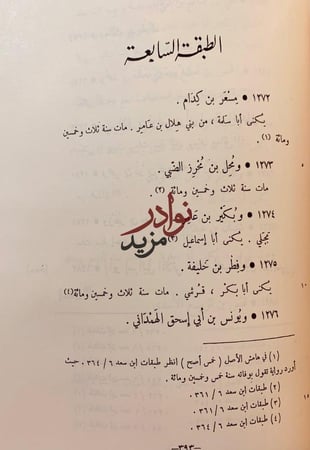 الطبقة السّابعة
١٢٧٢ • مِسْعَر بن كِدَام .
يكنى أبا سلمة ، من بني هلال بن عامر . مات سنة ثلاث وخمسين
ومائة (١) .
١٢٧٣ • ومُحِل بن مُحْرِز الضّبي .
مات سنة ثلاث وخمسين ومائة (٢) .
١٢٧٤ • وبُكَيْر بن
بجَلي . يكنى أبا إسماعيل (٣)
١٢٧٥ • وفِطْر بن خَليفة .
يكنى أبا بكر ، قرشي . مات سنة ثلاث وخمسين ومائة(٤)
١٢٧٦ • ويُونس بن أبي إسحق الهَمْدَاني .
(١) في هامش الأصل ( خمس أصح ) انظر طبقات ابن سعد ٦ / ٣٦٤ . حيث
أورد رواية تقول بوفاته سنة خمس وخمسين ومائة .
(٢) طبقات ابن سعد ٦ / ٣٦١ .
(٣) طبقات ابن سعد ٦ / ٣٦١ .
(٤) طبقات ابن سعد ٦ / ٣٦٤ .
—٣٩٣—
نوادر
مزيد
٥
١٠
١٥